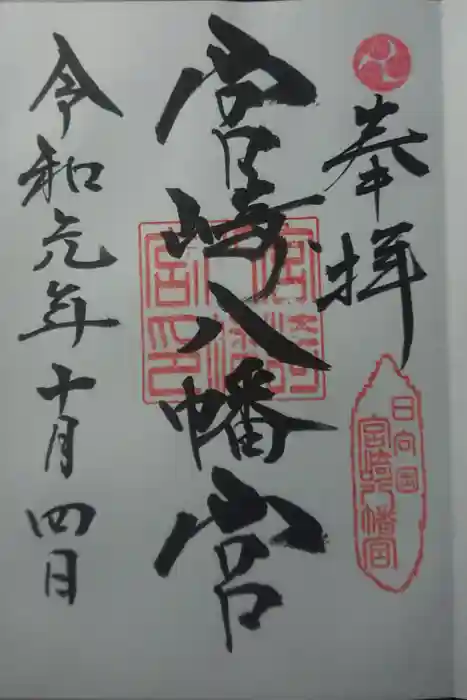 奉拝
日向国
宮崎八幡宮
宮崎八幡宮
令和元年十月四日